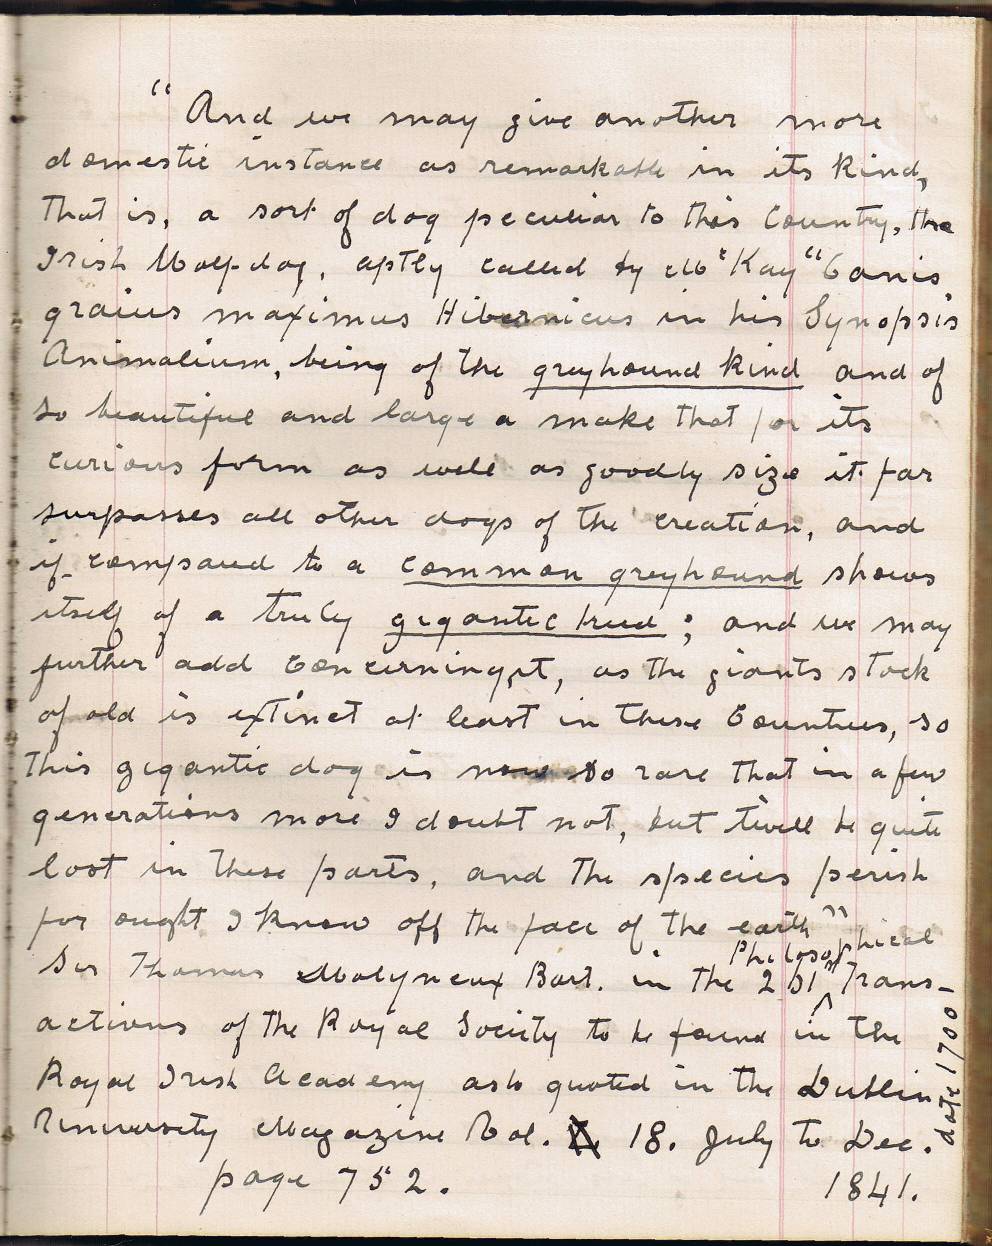 "And we may give another more
domestic instance as remarkable in its kind,
that is, a sort of dog peculiar to this Country, the
Irish Wolf-dog, aptly called by Mc Kay "Canis
graius maximus Hibernicus in his Synopsis
Animalium, being of the greyhound kind and of
so beautiful and large a make that for its
curious form as well as goodly size it far
surpasses all other dogs of the creation, and
if compared to a common greyhound shows
itself of a truly gigantic breed; and we may
further add concerning it, as the giants stock
of old is extinct at least in these Countries, so
this gigantic dog is now so rare that in a few
generations more I doubt not, but twill be quite
lost in these parts, and the species perish
for ought I know off the face of the earth"
Sir Thomas Molyneux Bart. in the 261 Philosophical Trans-
actions of the Royal Society to be found in the
Royal Irish Academy also quoted in the Dublin
University Magazine Vol. 18. July to Dec.
page 752. 1841.
date 1700